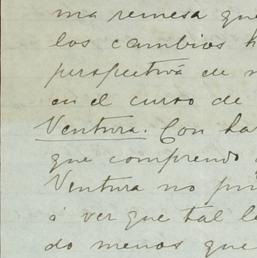 ma remesa que
los cambios h
perspectivá de
en el curso de
Ventura. Con ha
que comprendo
Ventura no pu
ó ver que tal le
do menos que